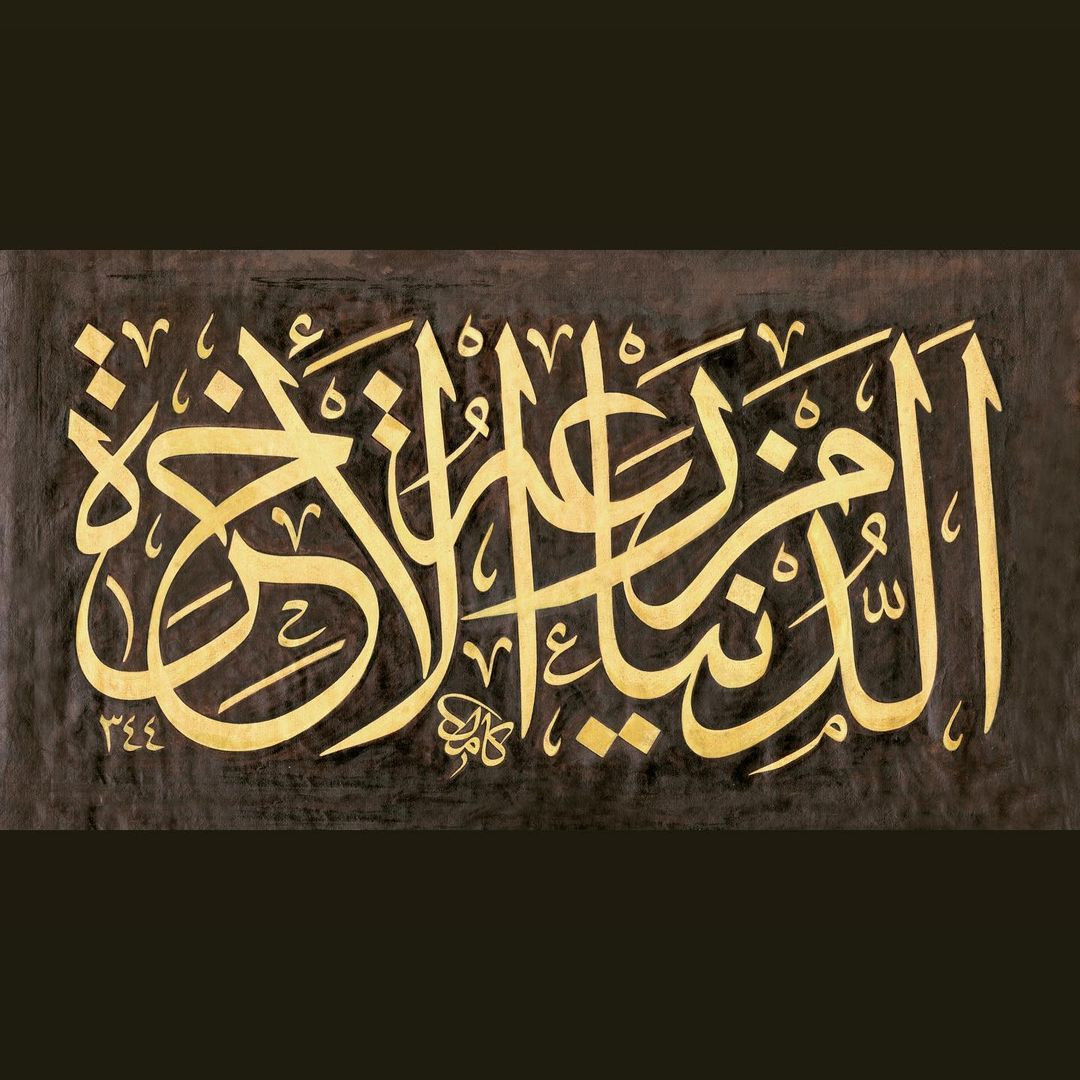 الدُّنيا مزرعة الآخرة
كامل
٣٤٤